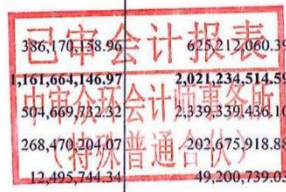 已审会计报表
386,170,158.96 625,212,060.39
1,161,664,146.97 2,021,234,514.59
中审众环会计师事务所
504,669,732.32 2,339,339,436.10
(特殊普通合伙)
268,470,204.07 202,675,918.88
12,495,744.34 49,200,739.03